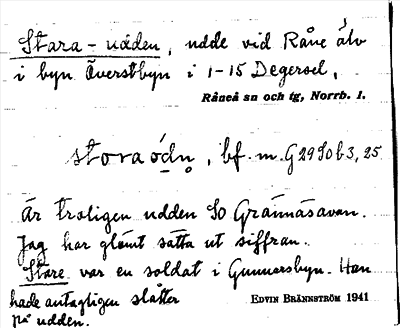 Stara-udden, udde vid Råne älv
i byn Överstbyn i 1-15 Degersel.
Råneå sn och tg, Norrb. l.
storaódn, bf. m. G29SOb3,25
Är troligen udden SO Grännäsavan.
Jag har glömt sätta ut siffran.
Stare var en soldat i Gunnarsbyn. Han
hade antagligen slåtter
på udden.
EDVIN BRÄNNSTRÖM 1941